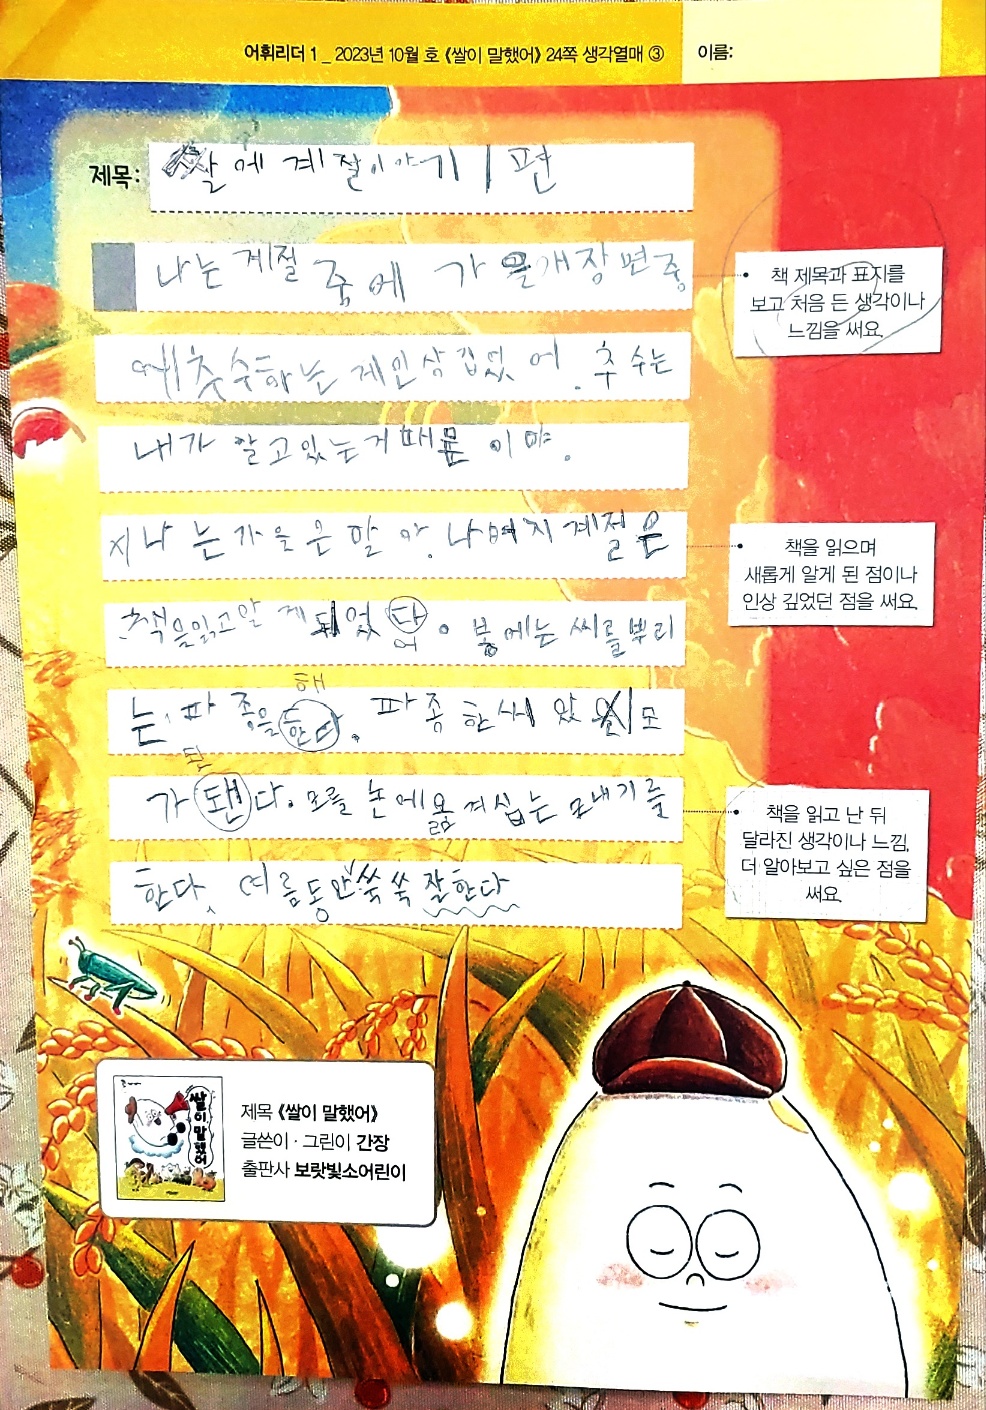 어휘리더 1 _ 2023년 10월 호 《쌀이 말했어》 24쪽 생각열매 ③ 이름:
제목: 쌀에 계절이야기 1편
나는 계절 중에 가을 개장면중
에 추수하는 게인상깁었어. 추수는
내가 알고있는거때문이야.
지나는가을은알아. 나머지계절은
책을읽고알게되었다. 봄에는씨를뿌리
어
해
는 파종을한다. 파종한씨앗 모
됀
가 됀다. 모를 논에옴겨심는 모내기를
한다, 여름동안쑥쑥잘한다
책 제목과 표지를
보고 처음 든 생각이나
느낌을 써요.
책을 읽으며
새롭게 알게 된 점이나
인상 깊었던 점을 써요.
책을 읽고 난 뒤
달라진 생각이나 느낌,
더 알아보고 싶은 점을
써요.
쌀이 말했어
제목 《쌀이 말했어》
글쓴이 · 그린이 간장
출판사 보랏빛소어린이